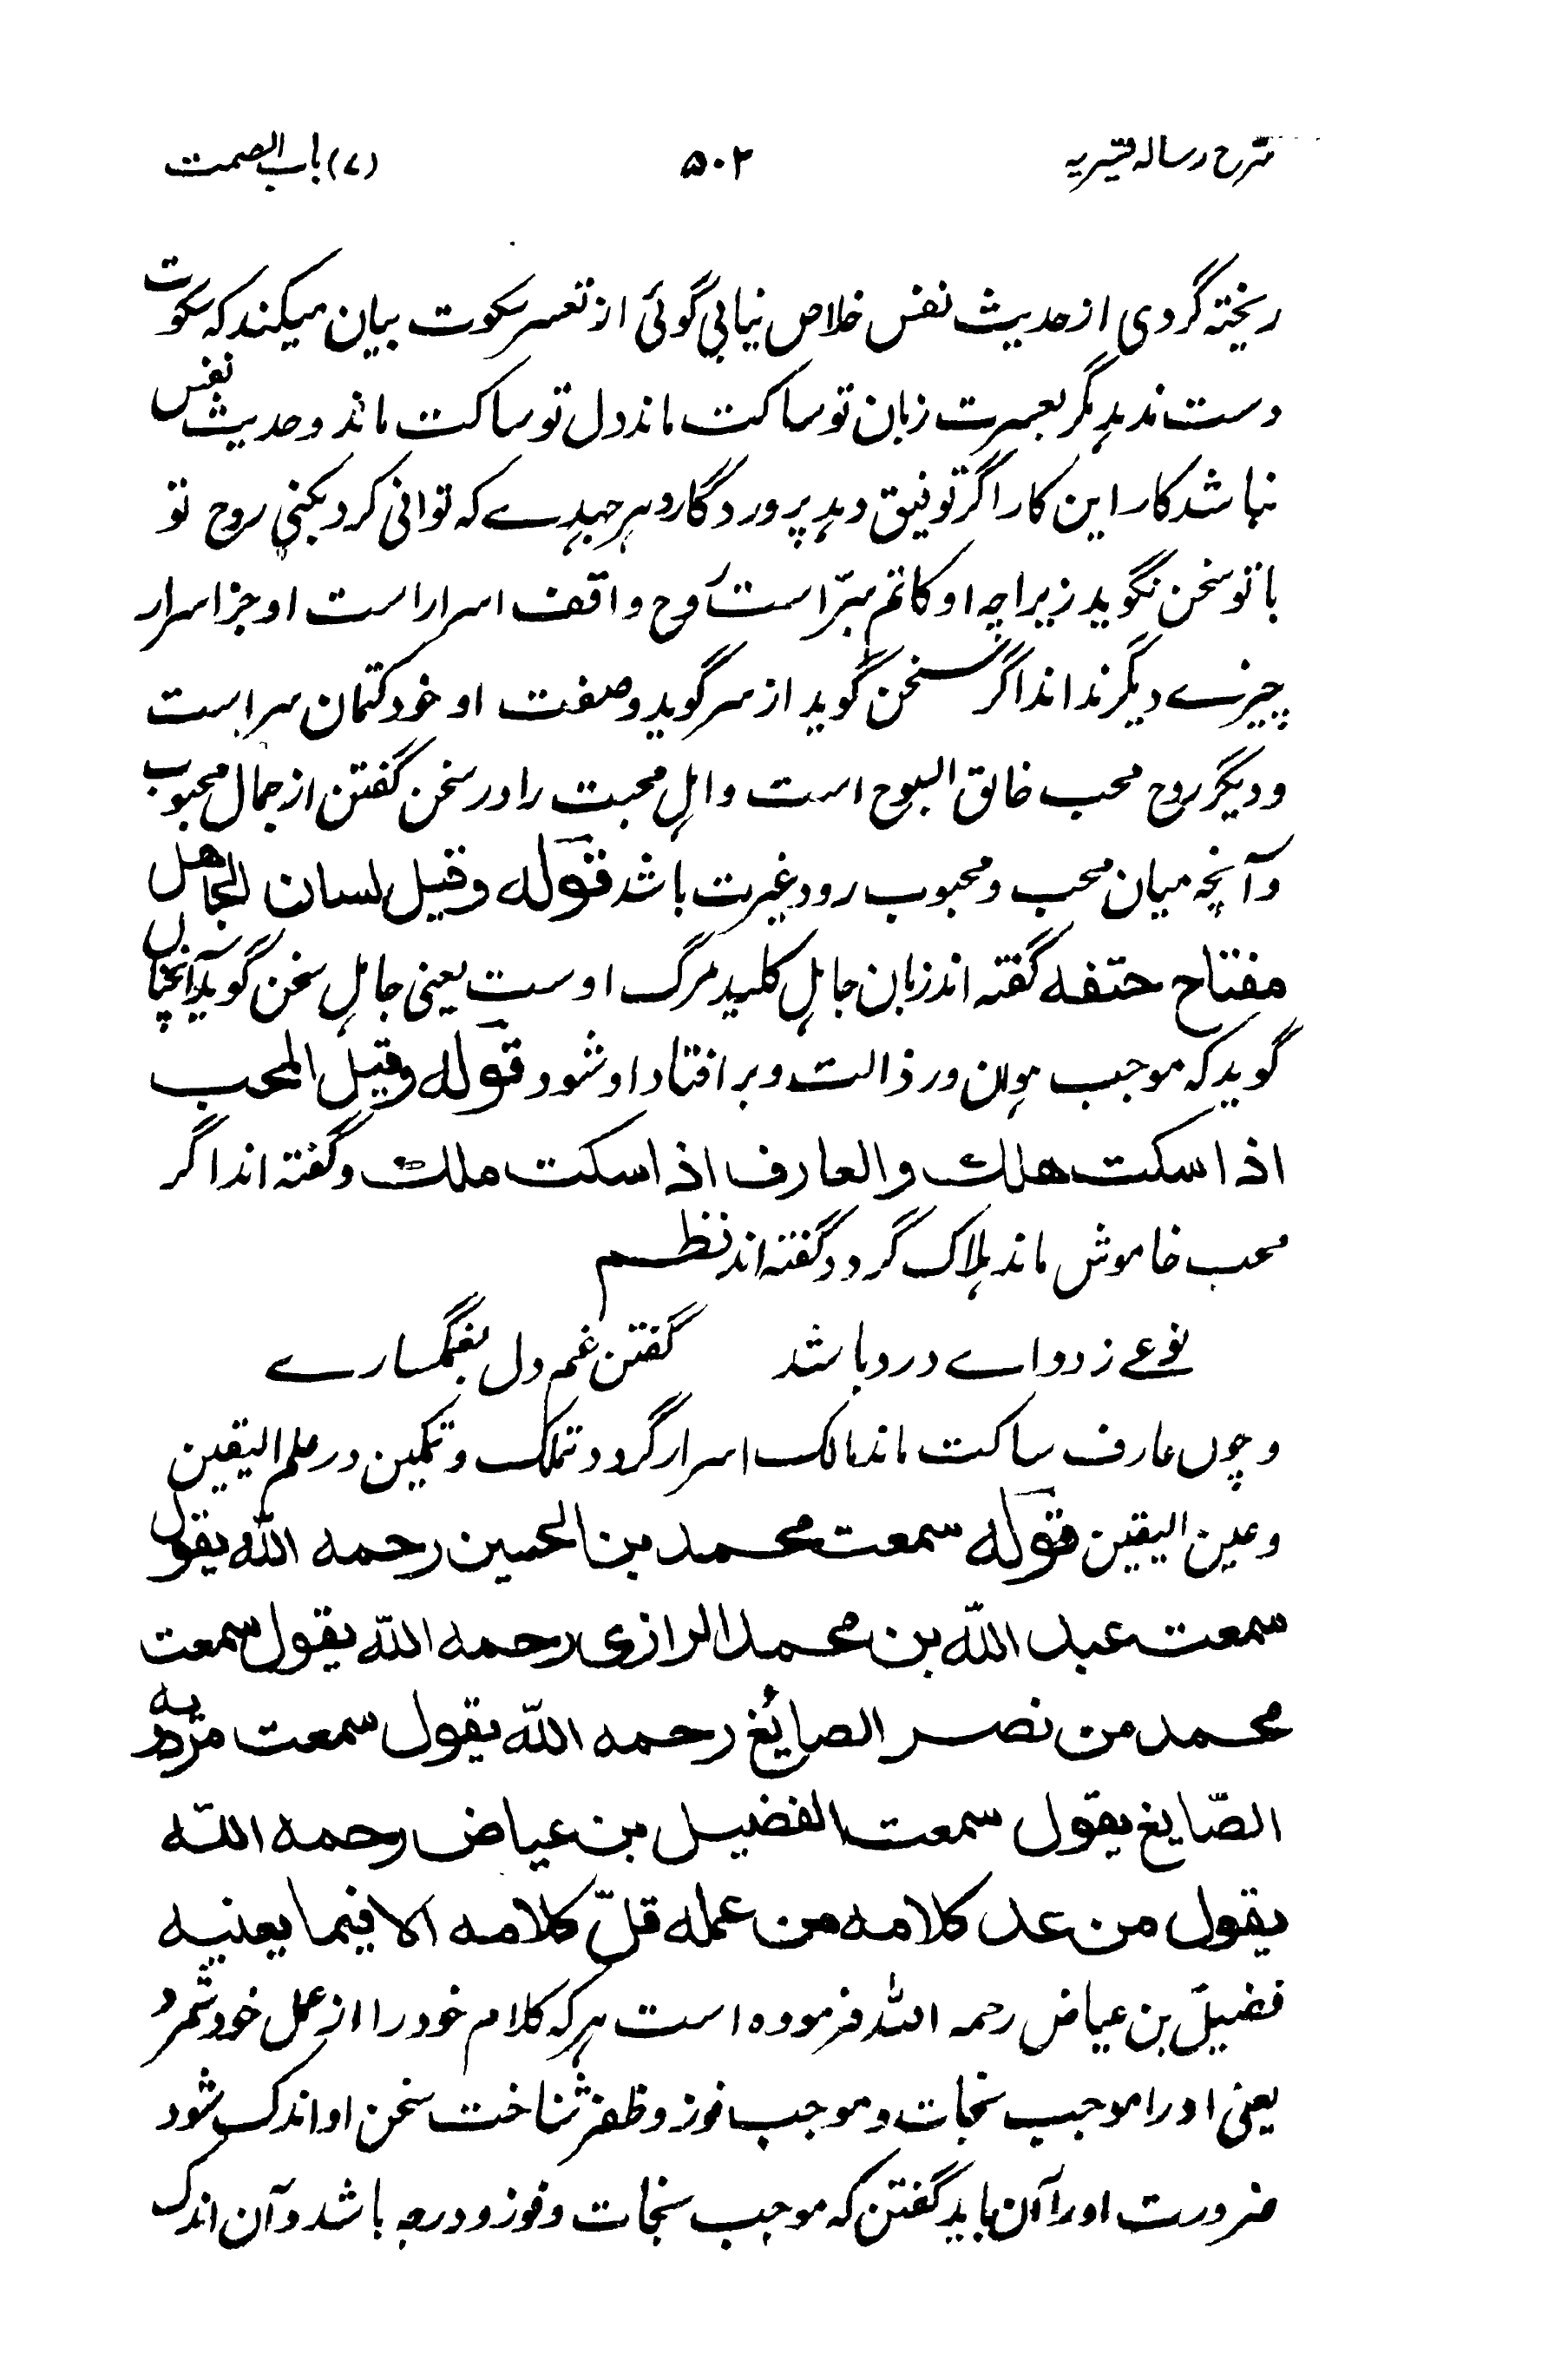 شرح رساله قشیریه ۵۰۲ (۷) باب الصمت
ریخته گردی از حدیث نفس خلاص نیابی گوئی از تعسر سکوت بیان میکند که سکوت
دست ندهد مگر بعسرت زبان تو ساکت ماند دل تو ساکت ماند و حدیث نفس
نباشد کار این کار اگر توفیق دهد پروردگار و هر جهدے که توانی کرد بکنی روح تو
با تو سخن نگوید زیراچه او کاتم سرّ است روح واقف اسرار است او جز اسرار
چیزے دیگر نداند اگر سخن گوید از سر گوید و صفت او خود کتمان سر است
و دیگر روح محب خالق السبوح است و اہل محبت را در سخن گفتن از جمال محبوب
و آنچه میان محب و محبوب رود غیرت باشد قوله وقیل لسان الجاهل
مفتاح حتفه گفته اند زبان جاہل کلید مرگ اوست یعنی جاہل سخن گوید آنچناں
گوید که موجب ہوان و رذالت و بر افتاد او شود قوله وقیل المحب
اذا سکت هلك والعارف اذا سکت ملك و گفته اند اگر
محب خاموش ماند ہلاک گردد گفته اند نظم
نوعے ز دواے درد باشد گفتن غم دل بغمگسارے
و چوں عارف ساکت ماند مالک اسرار گردد تملک و تمکین در علم الیقین
و عین الیقین قوله سمعت محمد بن الحسین رحمه الله یقول
سمعت عبد الله بن محمد الرازی رحمه الله یقول سمعت
محمد من نصر الصایٔغ رحمه الله یقول سمعت مردویه
الصّایغ یقول سمعت الفضیل بن عیاض رحمه الله
یقول من عد کلامه من عمله قلّ کلامه الا فیما یعنیه
فضیل بن عیاض رحمه الله فرموده است ہر که کلام خود را از عمل خود شمرد
یعنی او را موجب نجات و موجب فوز و ظفر شناخت سخن او اندک شود
ضرورت او را آن باید گفتن که موجب نجات و فوز و درجه باشد و آن اندک